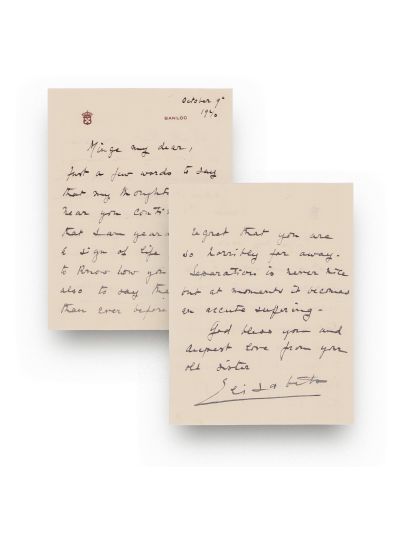 October 9th
1940
BANLOC
Minge my dear,
just a few words to say
that my thought
near you conti
that I am yearn
a sign of life
to know how you
also to say tha
than ever before
regret that you are
so horribly far away.
Separation is never nice
but at moments it becomes
an accute suffering.
God bless you and
deepest love from your
old sister
Elisabeta